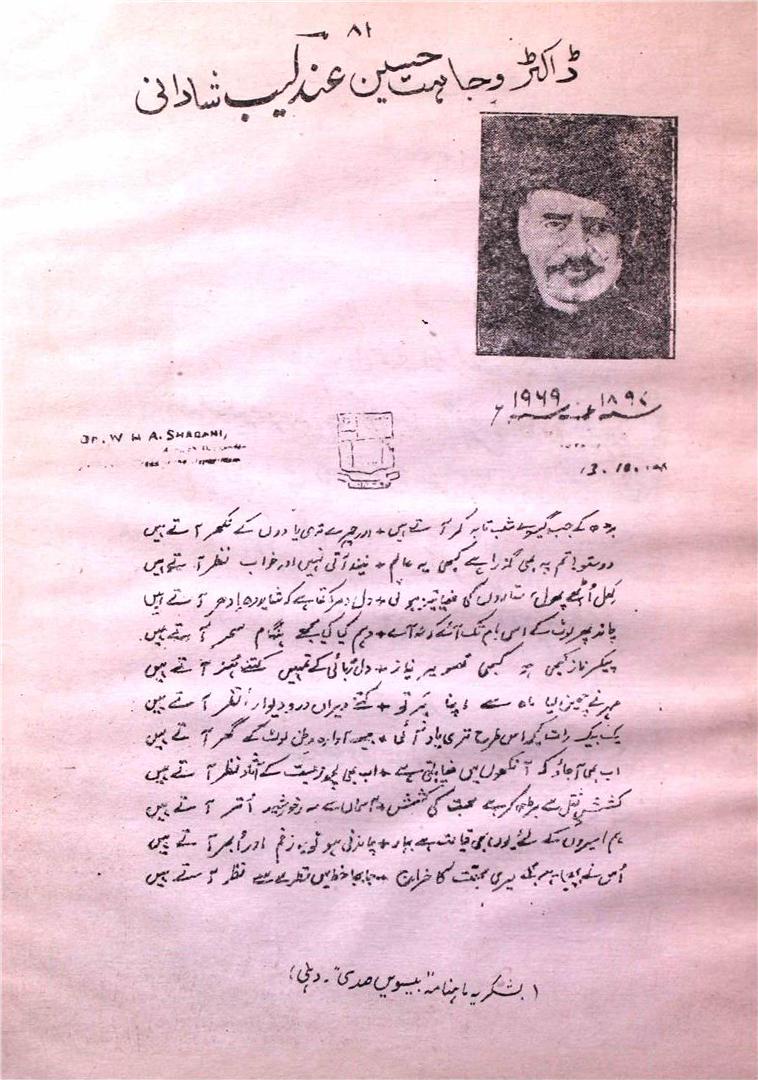 ۸۱
ڈاکٹر وجاہت حسین عندلیب شادانی
۱۸۹۷ ۱۹۶۹ء
DR. W H A. SHADANI,
13.10.
بڑھ کے جب گیسوئے شب تا بہ کمر آتے ہیں + اور چہرے تری یادوں کے نکھر آتے ہیں
دوستو! تم پہ بھی گزرا ہے کبھی یہ عالم + نیند آتی نہیں اور خواب نظر آتے ہیں
کھل اُٹھے پھول، ستاروں کی ضیا تیز ہوئی + دل دھڑکتا ہے کہ شاید وہ اِدھر آتے ہیں
چاند پھر لوٹ کے اس بام تک آئے کہ نہ آئے + وہم کیا کیا مجھے ہنگام سحر آتے ہیں
پیکرِ ناز کبھی ہو کبھی تصویرِ نیاز + دل رُبائی کے تمہیں کتنے ہنر آتے ہیں
مہر نے چھین لیا ماہ سے اپنا پرتو + کتنے ویراں در و دیوار نظر آتے ہیں
یک بیک رات کچھ اس طرح تری یاد آئی + جیسے آوارہ وطن لوٹ کے گھر آتے ہیں
اب بھی آجاؤ کہ آنکھوں میں ضیا باقی ہے + اب بھی کچھ زیست کے آثار نظر آتے ہیں
کششِ ثقل سے بڑھ کر ہے محبت کی کشش + آسماں سے مہ و خورشید اُتر آتے ہیں
ہم اسیروں کے لئے یوں بھی قیامت ہے بہار + چاندنی ہو تو یہ زخم اور اُبھر آتے ہیں
اُس نے بھیجا ہے مجھے میری محبت کا خراج + جا بجا خط میں قطرے سے نظر آتے ہیں
(بشکریہ ماہنامہ "بیسویں صدی" ۔ دہلی)